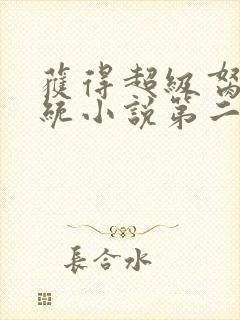 獲得超級
統小說第二
長合水